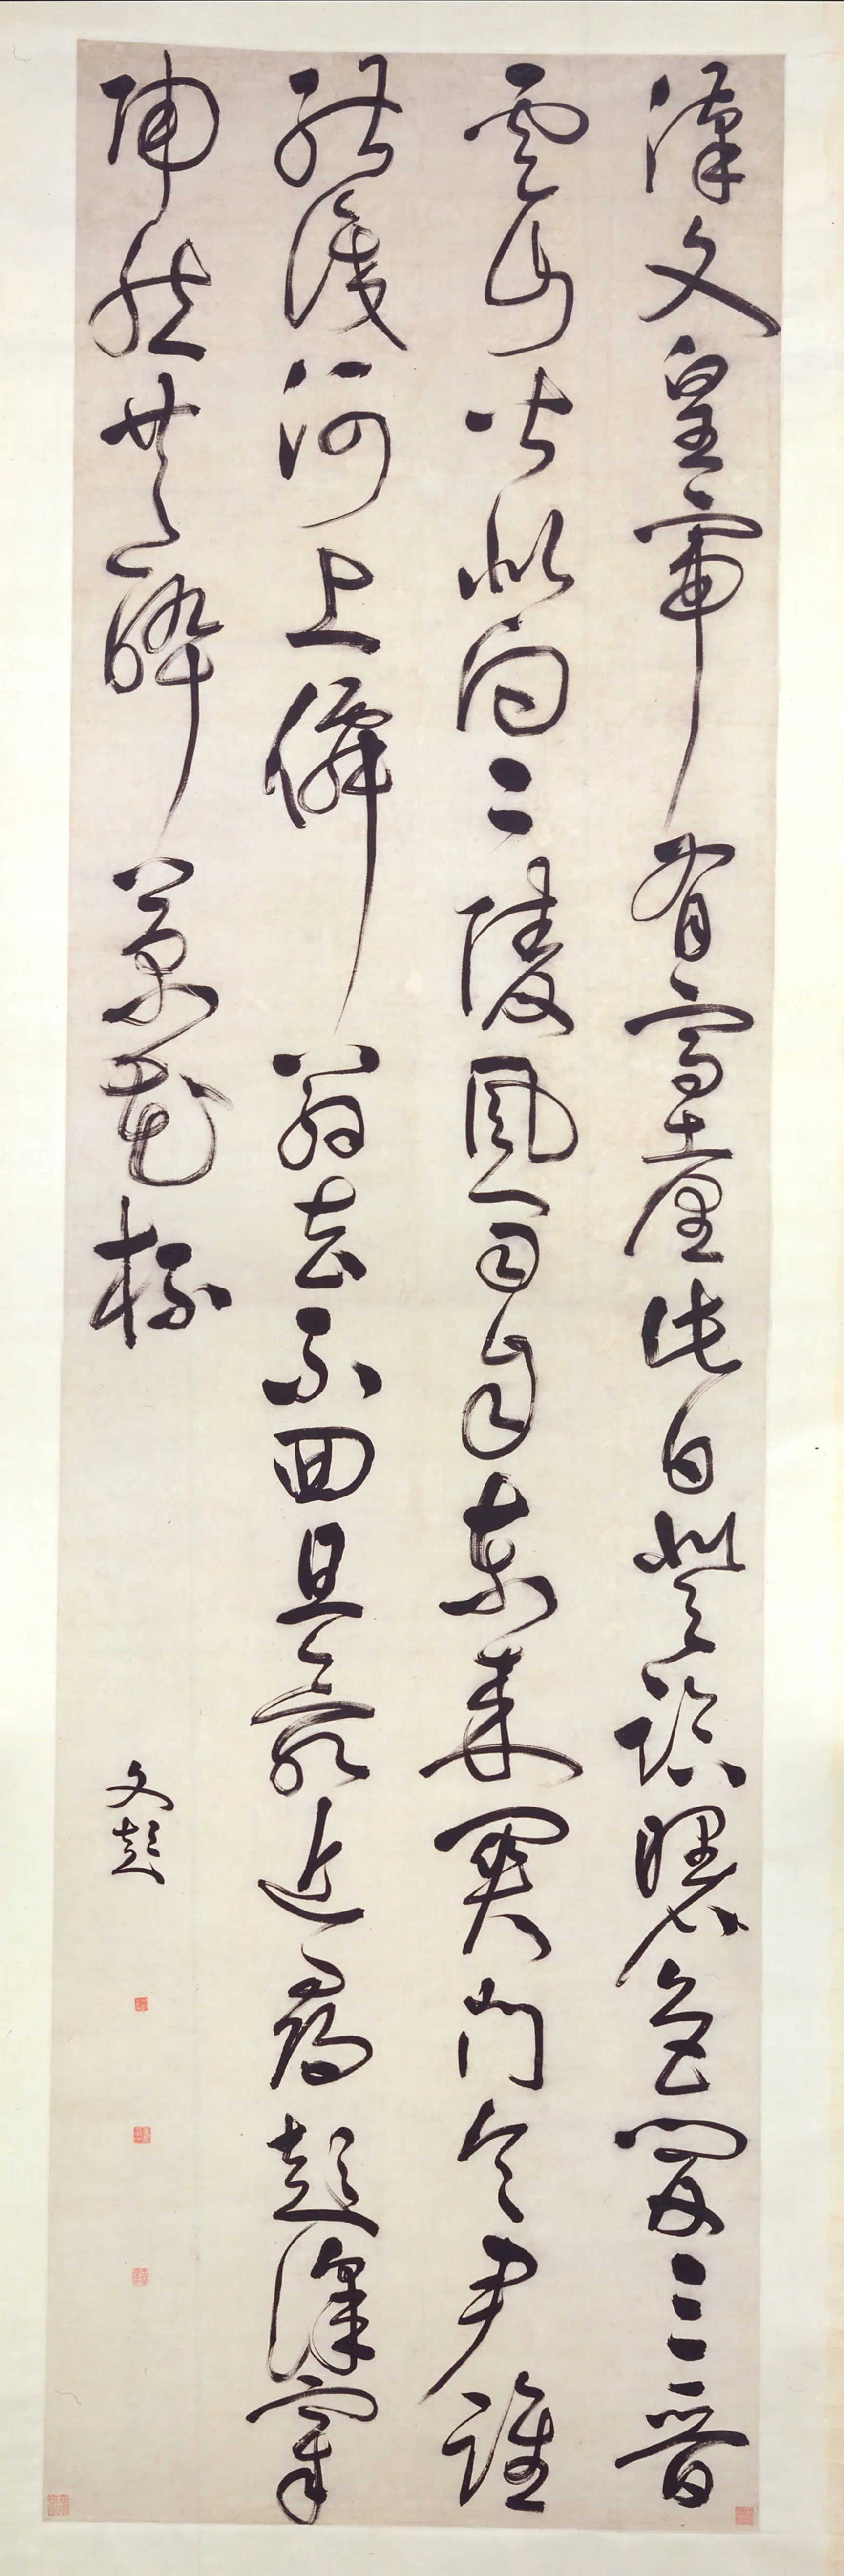 漢文皇帝有高臺此日登臨曙色開三晉
雲山皆北向二陵風雨自東來關門令尹誰
能識河上僊翁去不回且欲近尋彭澤宰
陶然共醉菊花杯
文彭